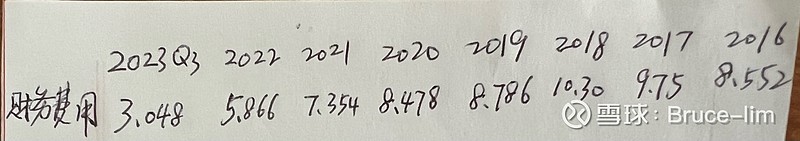 2023Q3 2022 2021 2020 2019 2018 2017 2016
财务费用 3.048 5.866 7.354 8.478 8.786 10.30 9.75 8.552
雪球：Bruce-lim